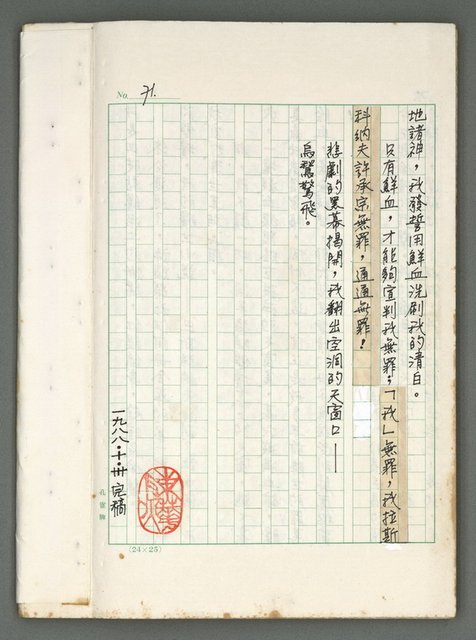 No. 71.
地諸神，我發誓用鮮血洗刷我的清白。
只有鮮血，才能夠宣判我無罪；「我」無罪，我拉斯
科納夫許承宗無罪，通通無罪！
悲劇的黑幕揭開，我翻出空洞的天窗口——
烏鶖驚飛。
一九八八・十・卅 完稿
孔雀牌
(24×25)